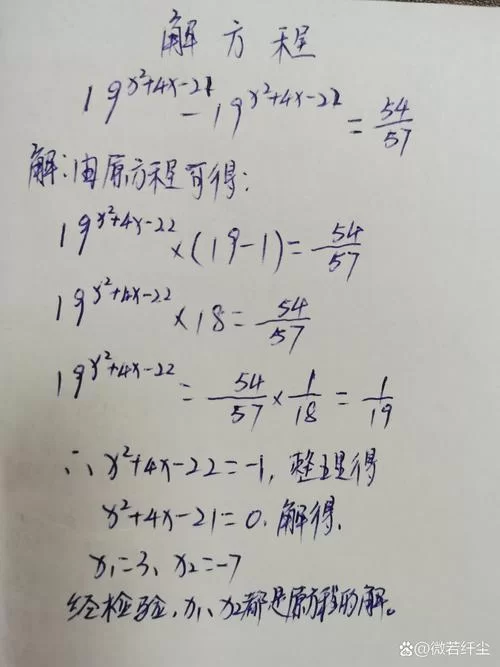 解方程
19^{x²+4x-21} - 19^{x²+4x-22} = 54/57
解:由原方程可得:
19^{x²+4x-22} ×(19-1)= 54/57
19^{x²+4x-22} ×18 = 54/57
19^{x²+4x-22} = 54/57 × 1/18 = 1/19
∴x²+4x-22=-1,整理得
x²+4x-21=0.解得,
x₁=3、x₂=-7
经检验,x₁、x₂都是原方程的解。
@微若纤尘